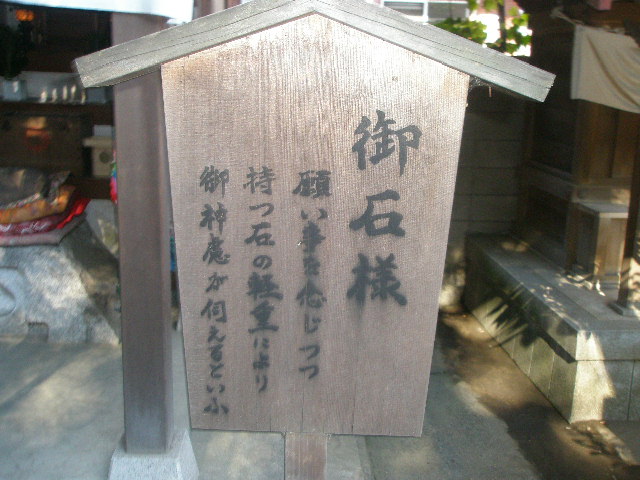 御石様
願い事を念じつつ
持つ石の軽重により
御神慮が伺えるといふ